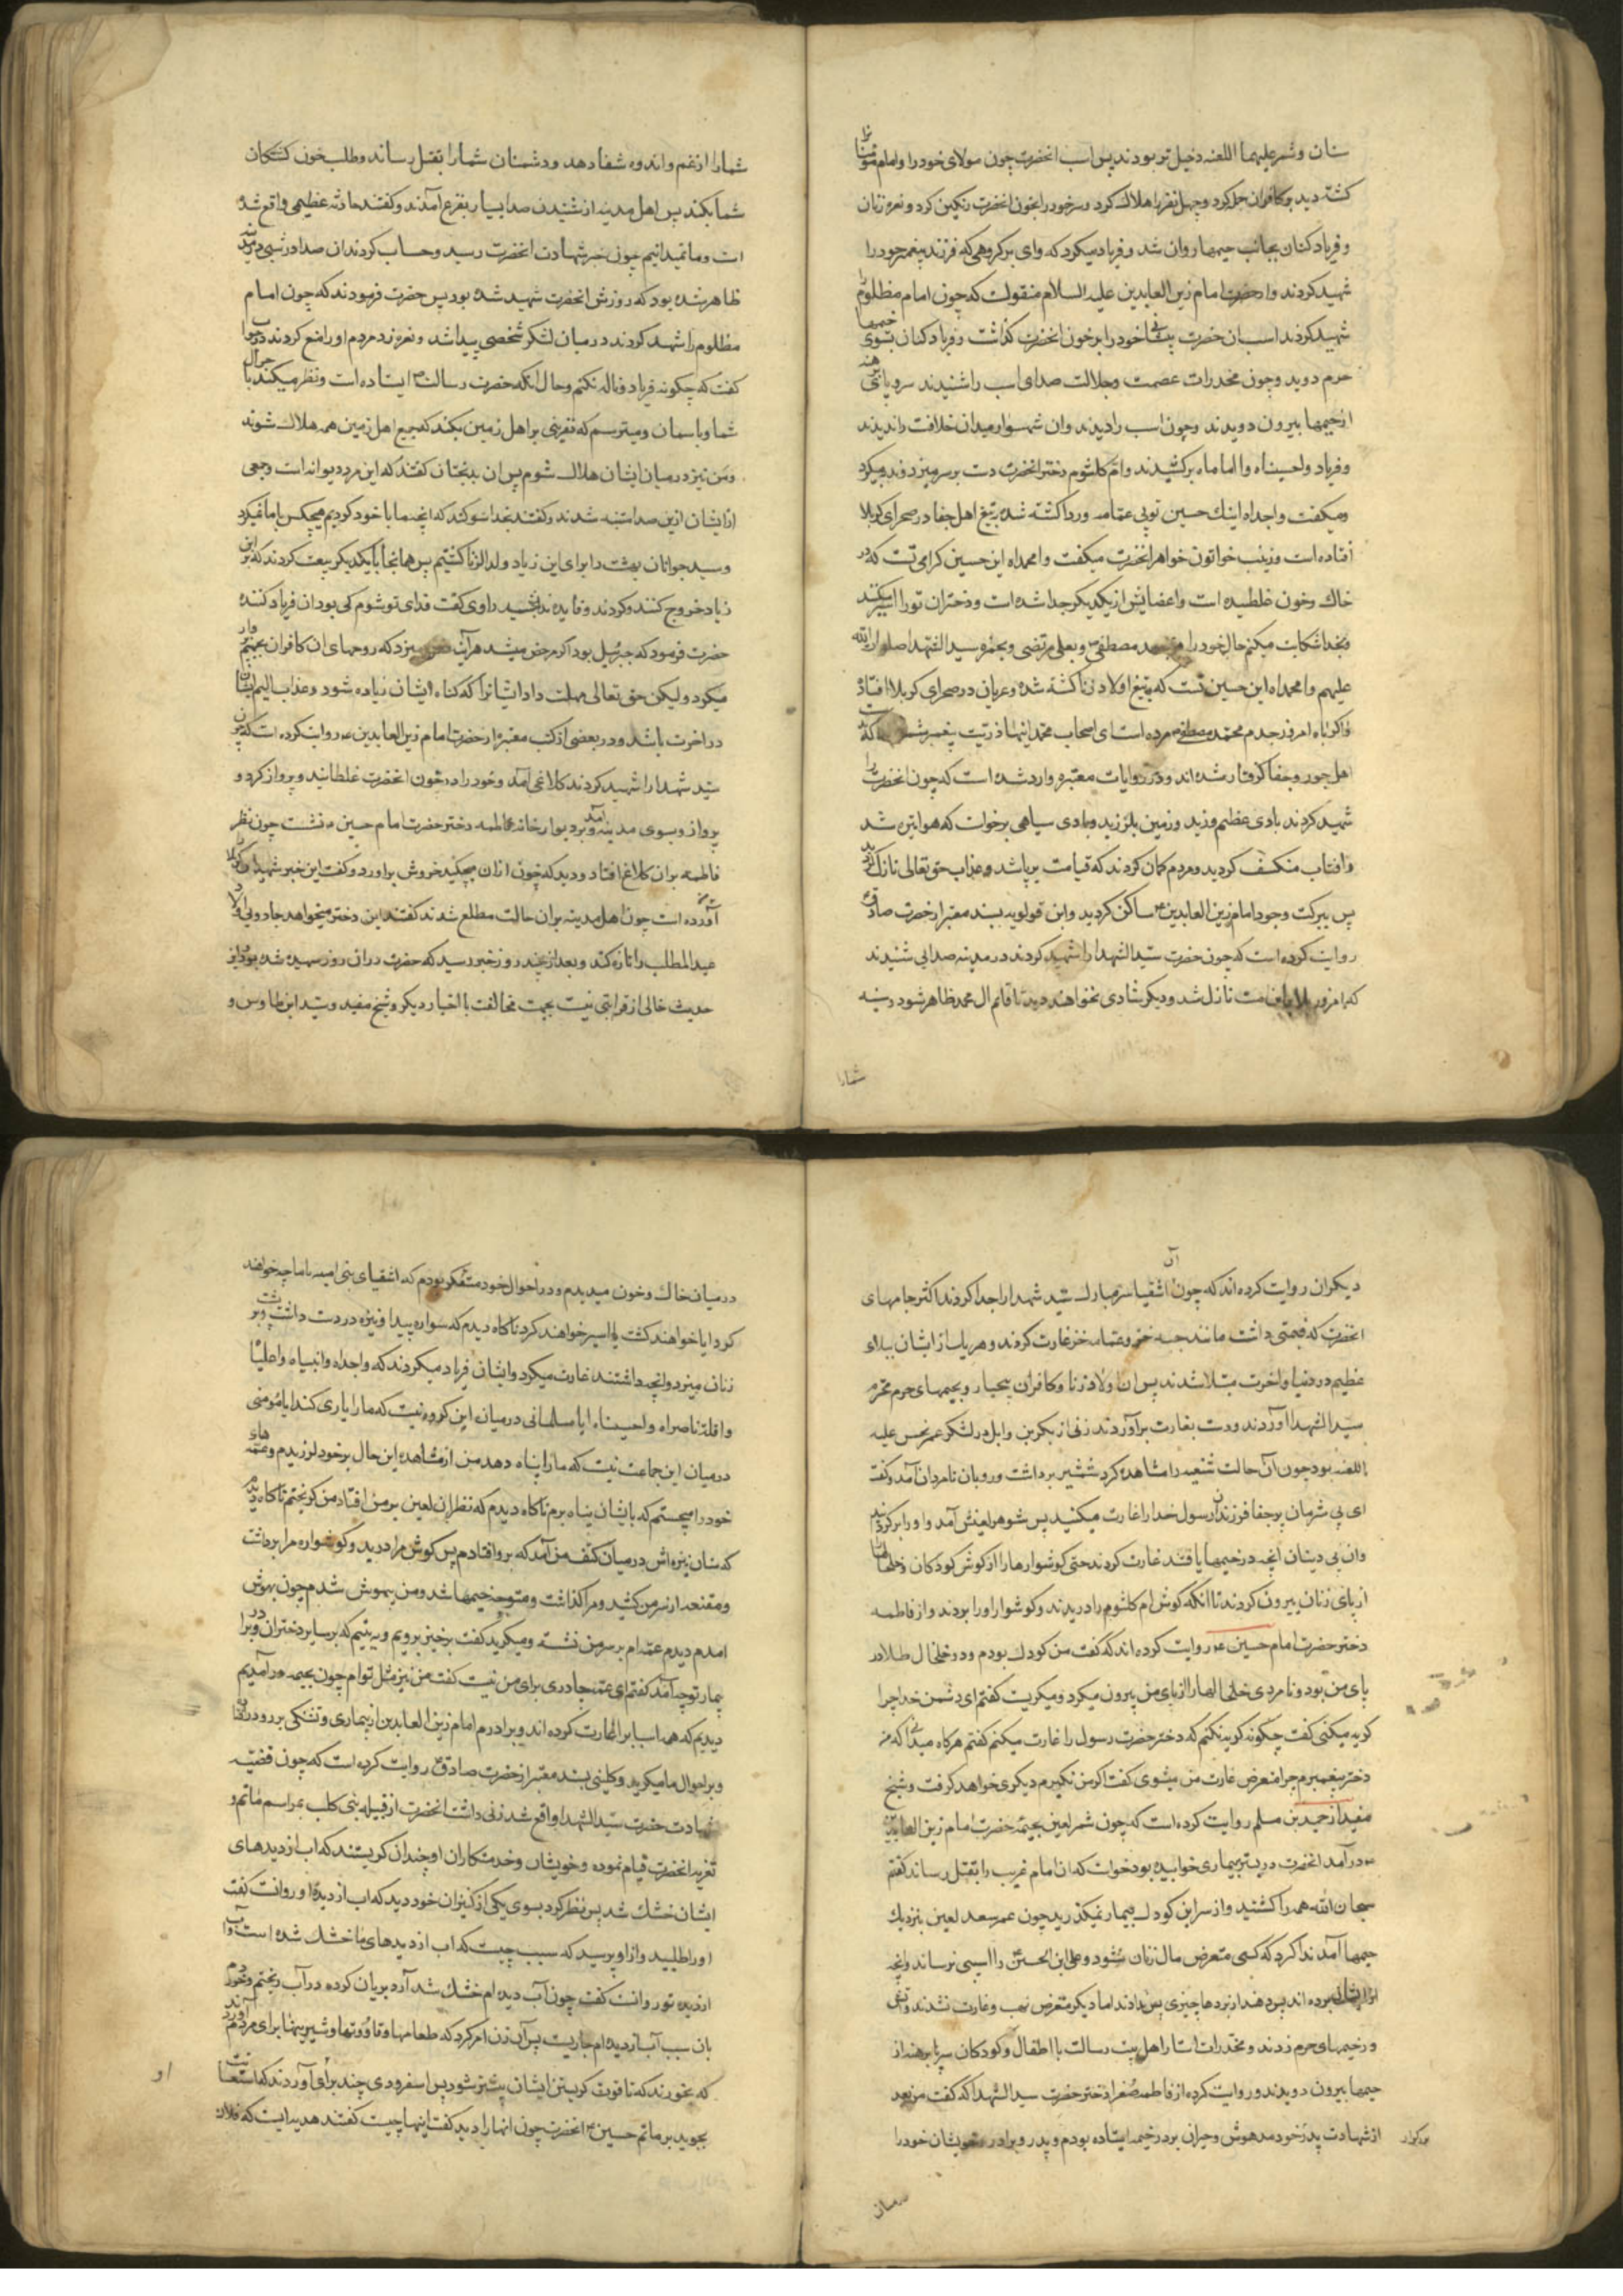 سنان و شمر علیهما اللعنه دخیل تر بودند پس اسب انحضرت چون مولای خود را و امام مؤمنانرا
کشته دید بر کافران حمله کرد و چهل نفر را هلاک کرد و سر خود را بخون انحضرت رنکین کرد و نعره زنان
و فریاد کنان بجانب خیمها روان شد و فریاد میکرد که وای بر کروهی که فرزند پیغمبر خود را
شهید کردند و از حضرت امام زین العابدین علیه السلام منقولست که چون امام مظلوم را
شهید کردند اسب ان حضرت پیشانی خود را بر خون انحضرت کذاشت و فریاد کنان بسوی خیمها
حرم دوید و چون مخدرات عصمت و جلالت صدای اسب را شنیدند سر و پای برهنه
از خیمها بیرون دویدند و چون اسب را دیدند و ان شهسوار میدان خلافت را ندیدند
و فریاد واحسیناه و اماماه برکشیدند و ام کلثوم دختر انحضرت دست بر سر میزد و ندبه میکرد
و میکفت واجداه اینک حسین تو بی عمامه و ردا کشته شده بتیغ اهل جفا در صحرای کربلا
افتاده است و زینب خواتون خواهر انحضرت میکفت وامحمداه این حسین کرامی تست که در
خاک و خون غلطیده است و اعضایش از یکدیکر جدا شده است و دختران تو را اسیر میکنند
و بخدا شکایت میکنم حال خود را و بمحمد مصطفی و بعلی مرتضی و بحمزه سید الشهدا صلوات الله
علیهم وامحمداه این حسین تست که بتیغ اولاد زنا کشته شده و عریان در صحرای کربلا افتاده
واکرباه امروز جدم محمد مصطفی مرده است ای اصحاب محمد اینها ذریت پیغمبر شما که
اهل جور و جفا کرفتار شده اند و در روایات معتبره وارد شده است که چون انحضرت را
شهید کردند بادی عظیم وزید و زمین بلرزید و بادی سیاهی برخواست که هوا تیره شد
و افتاب منکسف کردید و مردم کمان کردند که قیامت برپا شد و عذاب حق تعالی نازل کردید
پس ببرکت وجود امام زین العابدین ع ساکن کردید و ابن قولویه بسند معتبر از حضرت صادق ع
روایت کرده است که چون حضرت سید الشهدا را شهید کردند در مدینه صدایی شنیدند
که امروز بلا باین امت نازل شد و دیکر شادی نخواهند دید تا قائم ال محمد ظاهر شود و سینه
شمارا
شمارا از غم و اندوه شفا دهد و دشمنان شمارا بقتل رساند و طلب خون کشتکان
شما بکند پس اهل مدینه از شنیدن صدا بسیار بفزع آمدند و کفتند حادثه عظیمی واقع شده
است و ما نمیدانیم چون خبر شهادت انحضرت رسید و حساب کردند ان صدا در شبی در مدینه
ظاهر شده بود که روزش انحضرت شهید شده بود پس حضرت فرمودند که چون امام
مظلوم را شهید کردند در میان لشکر شخصی پیدا شد و نعره زد مردم او را منع کردند در جواب
کفت که چکونه فریاد و ناله نکنم و حال انکه حضرت رسالت ص ایستاده است و نظر میکند با جدال
شما و باسمان و میترسم که نفرینی بر اهل زمین بکند که جمیع اهل زمین همه هلاک شوند
و من نیز در میان ایشان هلاک شوم پس ان بدبختان کفتند که این مرد دیوانه است و جمعی
از ایشان ازین صدا متنبه شدند و کفتند بخدا سوکند که انچه ما با خود کردیم هیچکس با ما نمیکرد
و سید جوانان بهشت را برای ابن زیاد ولد الزنا کشتیم پس همانجا با یکدیکر بیعت کردند که بر ابن
زیاد خروج کنند و کردند و فایده نه بخشید راوی کفت فدای تو شوم کی بود ان فریاد کننده
حضرت فرمود که جبرئیل بود اکر مرخص میشد هر آینه نعره میزد که روحهای ان کافران بجهنم
میکرد و لیکن حق تعالی مهلت داد ایشانرا که کناه ایشان زیاده شود و عذاب الیم ایشان
در اخرت باشد و در بعضی از کتب معتبره از حضرت امام زین العابدین ع روایت کرده است که چون
سید شهدا را شهید کردند کلاغی آمد و خود را در خون انحضرت غلطانید و پرواز کرد و
پرواز و بسوی مدینه آمد و بر دیوار خانه فاطمه دختر حضرت امام حسین ع نشست چون نظر
فاطمه بران کلاغ افتاد و دید که خون ازان میچکید خروش براورد و کفت این خبر شهیدان کربلا
آورده است چون اهل مدینه بران حالت مطلع شدند کفتند این دختر میخواهد جادویی اولاد
عبدالمطلب را تازه کند و بعد از چند روز خبر رسید که حضرت دران روز شهید شده بود و این
حدیث خالی از قرابتی نیست بجهت مخالفت با اخبار دیکر و شیخ مفید و سید ابن طاوس و
دیکران روایت کرده اند که چون آن اشقیا سر مبارک سید شهدا را جدا کردند اکثر جامهای
انحضرت که قیمتی داشت مانند جبه خز و عمامه خز غارت کردند و هر یک از ایشان ببلای
عظیم در دنیا و اخرت مبتلا شدند پس ان اولاد زنا و کافران بیحیا رو بخیمهای حرم محترم
سید الشهدا اوردند و دست بغارت برآوردند زنی از بکر بن وایل در لشکر عمر نحس علیه
اللعنه بود چون آن حالت شنیعه را مشاهده کرد شمشیر برداشت و رو بان نامردان آمد و کفت
ای بی شرمان پر جفا فرزندان رسول خدا را غارت میکنید پس شوهرش امد و او را برکردانید
وان بی دینان انچه در خیمها یافتند غارت کردند حتی کوشوارها را از کوش کودکان و خلخالها
از پای زنان بیرون کردند تا انکه کوش ام کلثوم را دریدند و کوشوار او را بردند و از فاطمه
دختر حضرت امام حسین ع روایت کرده اند که کفت من کودک بودم و دو خلخال طلا در
پای من بود و نامردی خلخالها را از پای من بیرون میکرد و میکریست کفتم ای دشمن خدا چرا
کریه میکنی کفت چکونه کریه نکنم که دختر حضرت رسول را غارت میکنم کفتم هرکاه میدانی که من
دختر پیغمبرم چرا متعرض غارت من میشوی کفت اکر من نکیرم دیکری خواهد کرفت و شیخ
مفید از حمید بن مسلم روایت کرده است که چون شمر لعین بخیمه حضرت امام زین العابدین
ع درآمد انحضرت در بستر بیماری خوابیده بود خواست که ان امام غریب را بقتل رساند کفتم
سبحان الله همه را کشتید و از سر این کودک بیمار نمیکذرید چون عمر سعد لعین بنزدیک
خیمها آمد ندا کرد که کسی متعرض مال زنان نشود و علی ابن الحسین را اسیبی نرساند و انچه
از ایشان برده اند پس دهند ان نردها چیزی پس ندادند اما دیکر متعرض نهب و غارت نشدند و اتش
در خیمهای حرم زدند و مخدرات استار اهل بیت رسالت با اطفال و کودکان سر و پا برهنه از
خیمها بیرون دویدند و روایت کرده از فاطمه صغرا دختر حضرت سید الشهدا که کفت من بعد
از شهادت پدر خود مدهوش و حیران بر در خیمه ایستاده بودم و پدر و برادر و خویشان خود را
بزرکوار
درمیان
در میان خاک و خون میدیدم و در احوال خود متفکر بودم که اشقیای بنی امیه با ما چه خواهند
کرد ایا خواهند کشت یا اسیر خواهند کرد ناکاه دیدم که سواره پیدا و نیزه در دست داشت و بر پشت
زنان میزد و انچه داشتند غارت میکرد و ایشان فریاد میکردند که واجداه وانبیاه واعلیا
واقلة ناصراه واحسیناه ایا مسلمانی در میان این کروه نیست که ما را یاری کند ایا مؤمنی
در میان این جماعت نیست که ما را پناه دهد من از مشاهده این حال بر خود لرزیدم و عمه های
خود را میجستم که بایشان پناه برم ناکاه دیدم که نظر ان لعین بر من افتاد من کریختم ناکاه دیدم
که سنان نیزه اش در میان کتف من آمد که برو افتادم پس کوش مرا درید و کوشواره مرا برداشت
و مقنعه از سر من کشید و مرا کذاشت و متوجه خیمها شد و من بیهوش شدم چون بهوش
امدم دیدم عمه ام بر سر من نشسته و میکرید کفت برخیز برویم و ببینیم که بر سایر دختران و برادر
بیمار تو چه آمد کفتم ای عمه چادری برای من نیست کفت من نیز مثل تو ام چون بخیمه درآمدیم
دیدیم که همه اسبابرا غارت کرده اند و برادرم امام زین العابدین از بیماری و تشنکی بر رو در افتاده
و بر احوال ما میکرید و کلینی بسند معتبر از حضرت صادق ع روایت کرده است که چون قضیه
شهادت حضرت سید الشهدا واقع شد زنی داشت انحضرت از قبیله بنی کلب بمراسم ماتم و
تعزیه انحضرت قیام نموده و خویشان و خدمتکاران او چندان کریستند که اب از دیدهای
ایشان خشک شد پس نظر کرد بسوی یکی از کنیزان خود دید که اب از دیده او روانست کفت
او را طلبید و از او پرسید که سبب چیست که اب از دیدهای ما خشک شده است و اب
از دیده تو روانست کفت چون آب دیده ام خشک شد آرد بریان کرده در آب ریختم و خوردم
بان سبب آب از دیده ام جاریست پس آن زن امر کرد که طعامها و قاووتها و شیرینها برای مردم آوردند
که بخورند که تا قوت کریستن ایشان بیشتر شود پس اسفرودی چند برای او آوردند که استعانت
بجوید بر ماتم حسین ع انحضرت چون انها را دید کفت اینها چیست کفتند هدیه ایست که فلان
او